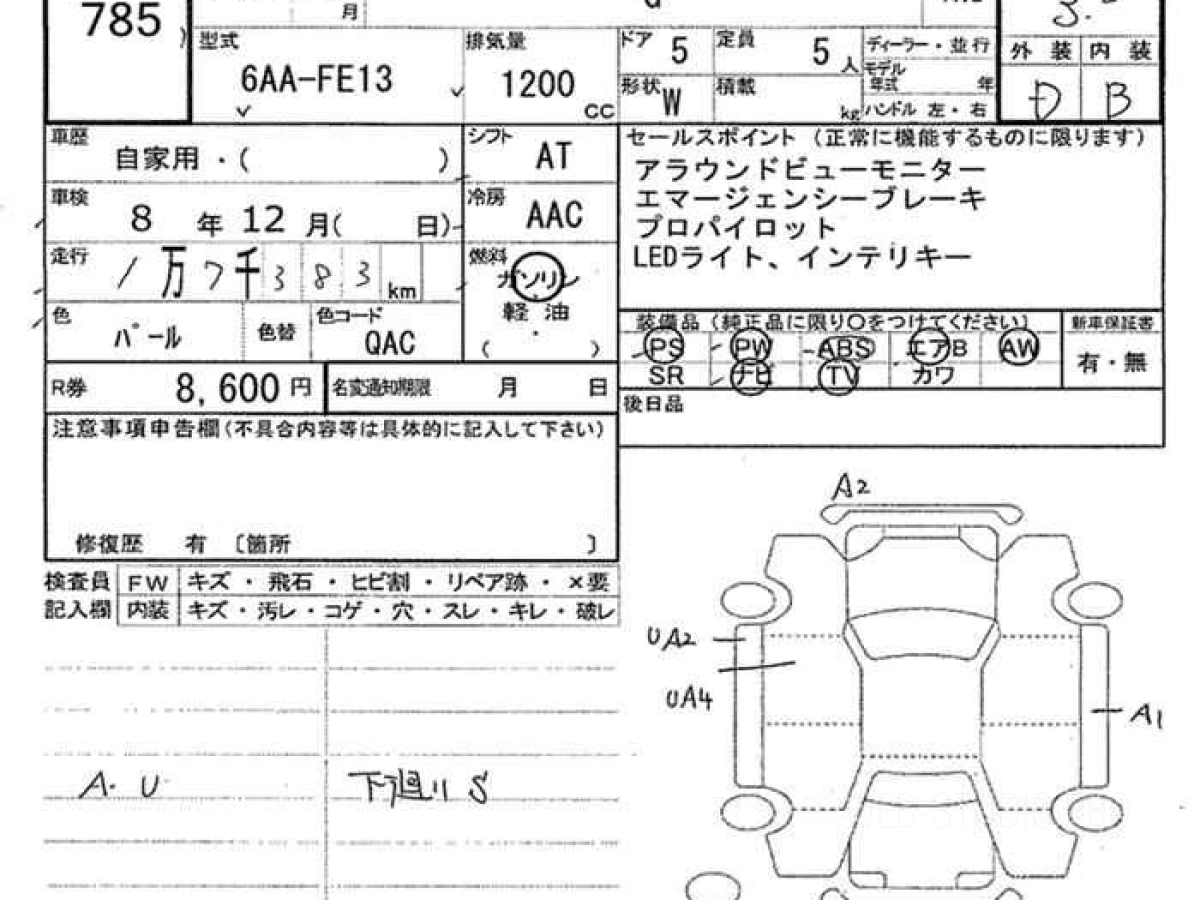 785
月
型式
6AA-FE13
排気量
1200
CC
ドア 5
定員 5 人
形状 W
積載 kg
ディーラー・並行
モデル年式 年
ハンドル 左・右
外装 内装
D B
車歴
自家用・( )
シフト AT
車検
8 年 12 月( 日)
冷房 AAC
走行
1万7千383km
燃料
ガソリン
軽油
( ・ )
色
パール
色替
色コード
QAC
R券 8,600円
名変通知期限 月 日
セールスポイント(正常に機能するものに限ります)
アラウンドビューモニター
エマージェンシーブレーキ
プロパイロット
LEDライト、インテリキー
装備品(純正品に限り○をつけてください)
PS PW ABS エアB AW
SR ナビ TV カワ
新車保証書
有・無
後日品
注意事項申告欄(不具合内容等は具体的に記入して下さい)
修復歴 有 〔箇所 〕
検査員 FW キズ・飛石・ヒビ割・リペア跡・×要
記入欄 内装 キズ・汚レ・コゲ・穴・スレ・キレ・破レ
A. U
下廻りS
A2
UA2
UA4
A1